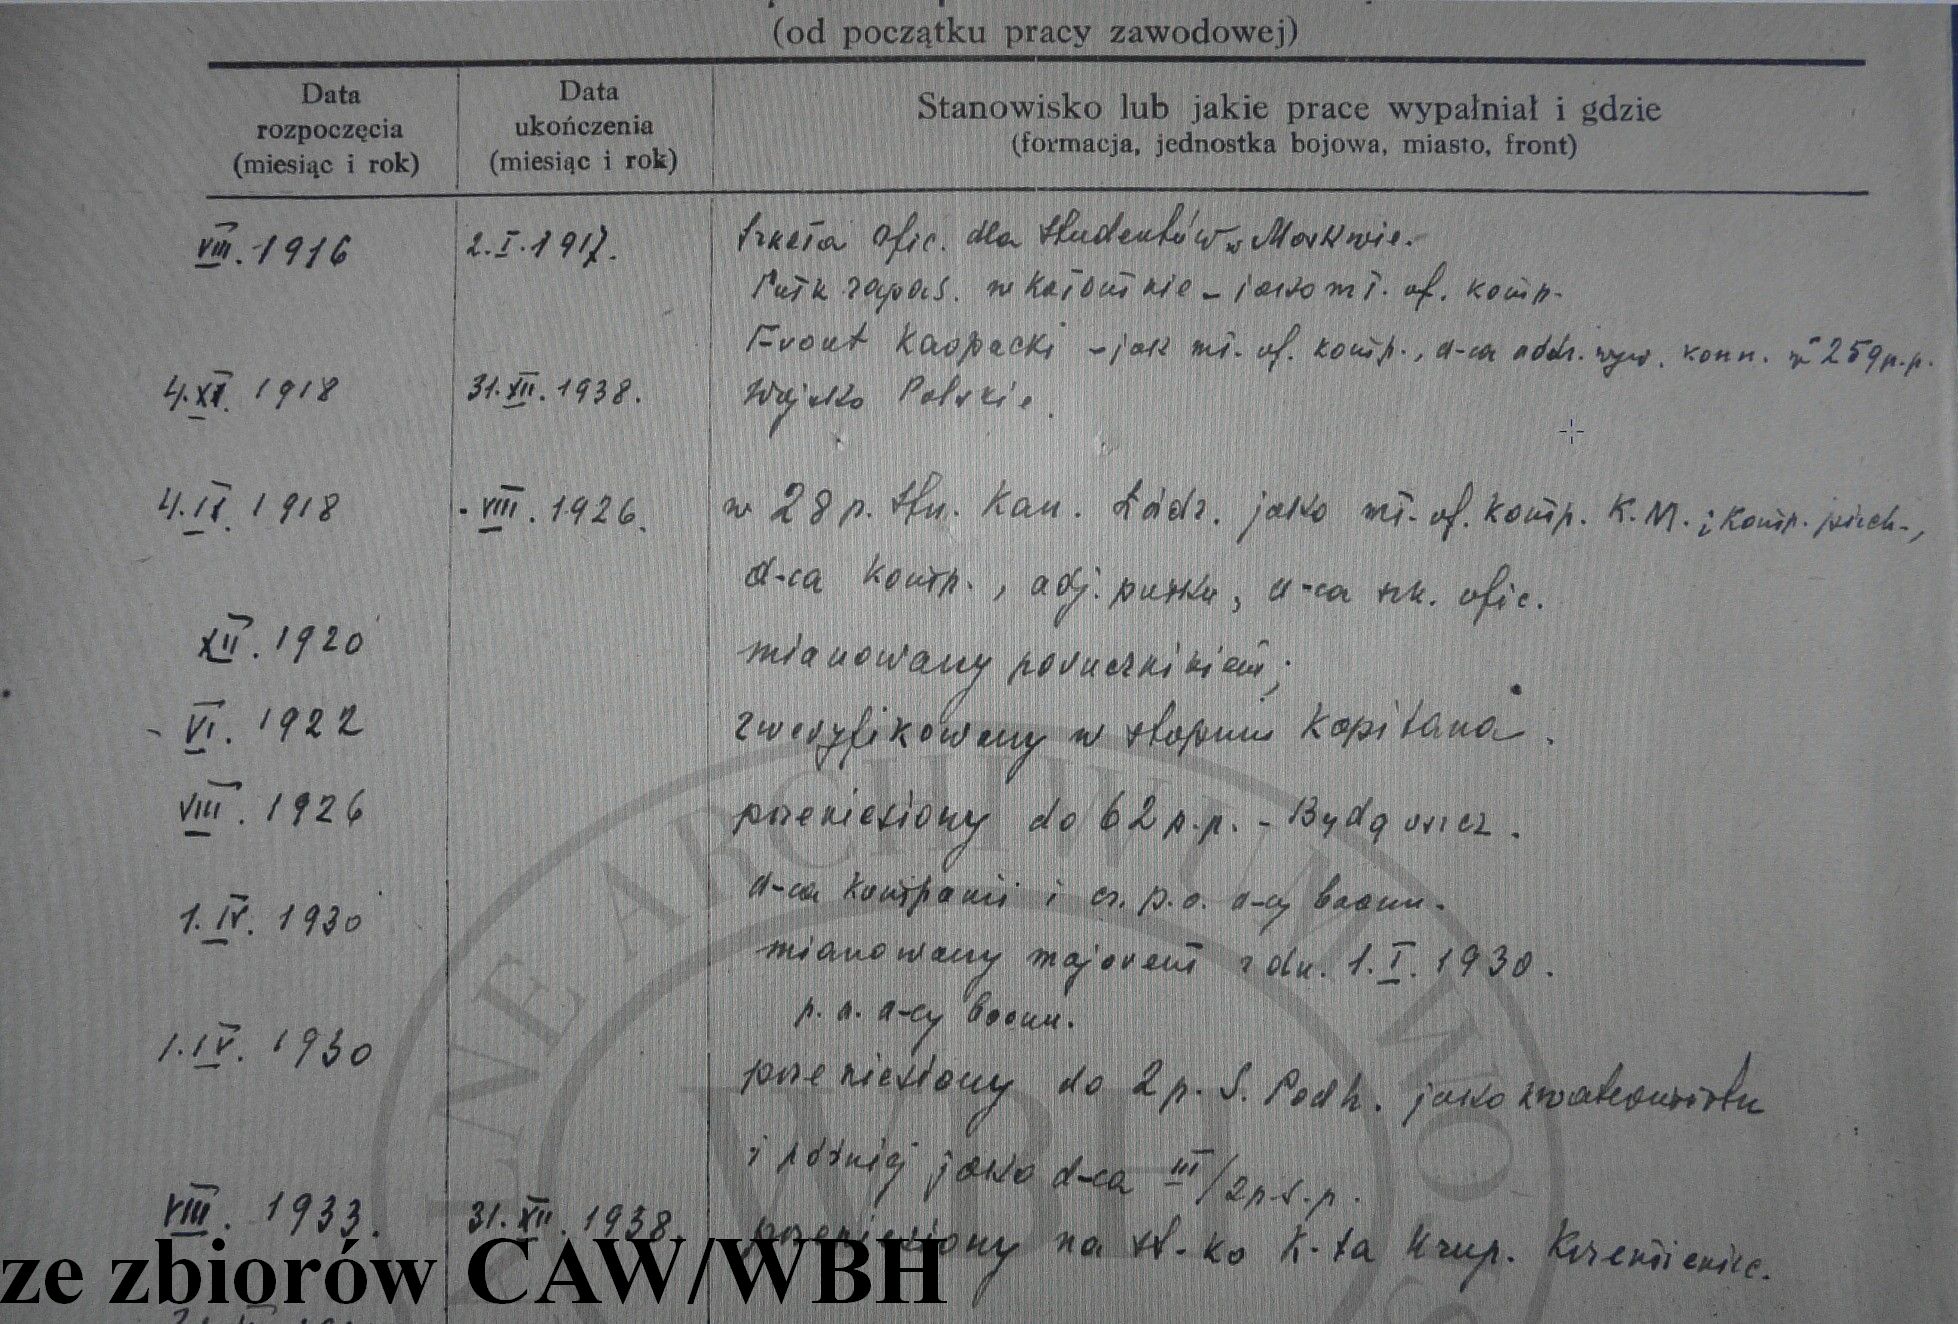 (od początku pracy zawodowej)
Data rozpoczęcia (miesiąc i rok)
Data ukończenia (miesiąc i rok)
Stanowisko lub jakie prace wypałniał i gdzie
(formacja, jednostka bojowa, miasto, front)
VIII. 1916 2.I.1917. Szkoła Ofic. dla Studentów w Moskwie.
Pułk zapas. w - jako mł. of. komp.
Front Karpacki - jak mł. of. komp., d-ca oddz. wyw. konn. w 259 p.p.
4.XI. 1918 31.XII.1938. Wojsko Polskie.
4.XI. 1918 - VIII. 1926. w 28 p. Stu. Kan. Łódz. jako mł. of. komp. K.M. i komp. piech.,
d-ca komp., adj. pułku, d-ca szk. ofic.
XII. 1920 mianowany porucznikiem;
- VI. 1922 zweryfikowany w stopniu kapitana.
VIII. 1926 przeniesiony do 62 p.p. - Bydgoszcz.
d-ca kompanii i cz. p.o. d-cy baonu.
1.IV. 1930 mianowany majorem z dn. 1.I.1930.
p.o. d-cy baonu.
1.IV. 1930 przeniesiony do 2 p. S. Podh. jako kwatermistrz
i później jako d-ca III/2 p.s.p.
VIII. 1933. 31.XII.1938. przeniesiony na st-ko K-ta Krzemieniec.
ze zbiorów CAW/WBH
ARCHIWUM WO
WBH